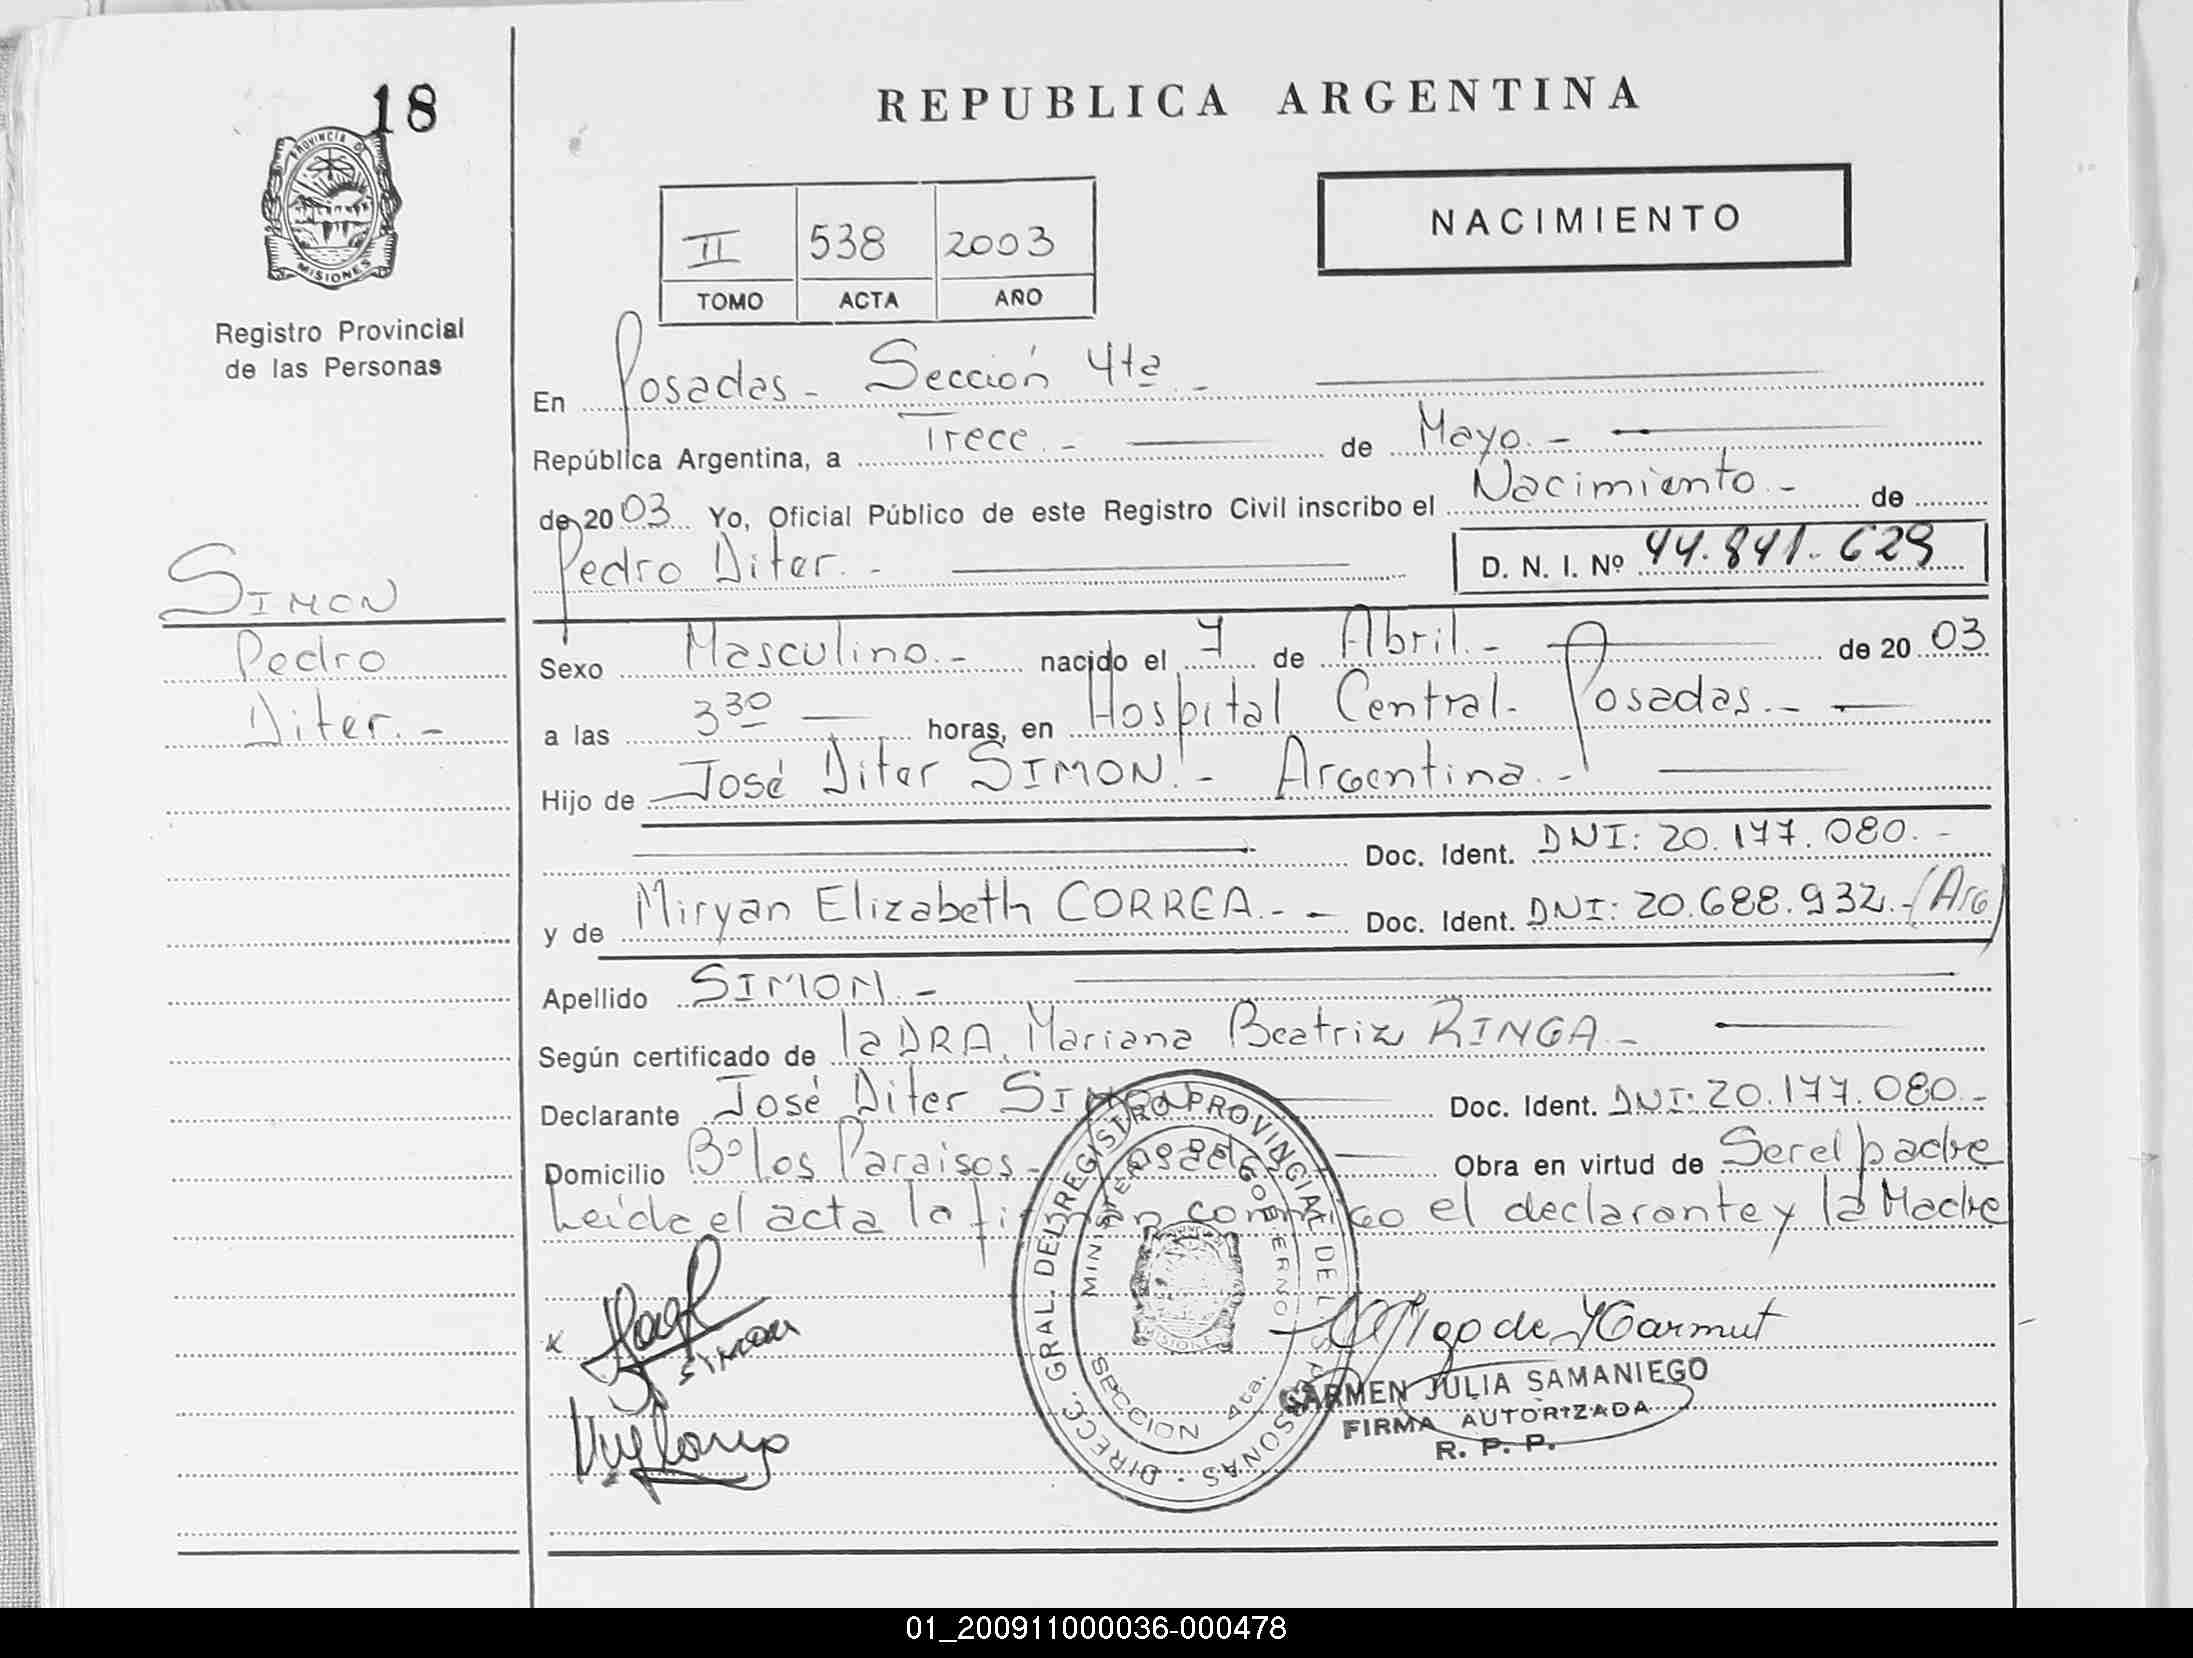 18
PROVINCIA DE
MISIONES
Registro Provincial
de las Personas
SIMON
Pedro
Diter.-
REPUBLICA ARGENTINA
NACIMIENTO
II 538 2003
TOMO ACTA AÑO
En Posadas - Sección 4ta.-
República Argentina, a Trece.- de Mayo.-
de 2003 Yo, Oficial Público de este Registro Civil inscribo el Nacimiento.- de
Pedro Diter.- D. N. I. Nº 44.841.629
Sexo Masculino.- nacido el 7 de Abril.- de 2003
a las 3 30 horas, en Hospital Central- Posadas.-
Hijo de José Diter SIMON.- Argentina.-
Doc. Ident. DNI: 20.177.080.-
y de Miryan Elizabeth CORREA.- - Doc. Ident. DNI: 20.688.932.- (Arg)
Apellido SIMON.-
Según certificado de la DRA. Mariana Beatriz RINGA.-
Declarante José Diter SIMON Doc. Ident. DNI: 20.177.080.-
Domicilio Bº los Paraisos- Posadas Obra en virtud de Ser el padre
Leída el acta la firman conmigo el declarante y la Madre
DIRECC. GRAL. DEL REGISTRO PROVINCIAL DE LAS PERSONAS
MINISTERIO DE GOBIERNO
MISIONES
SECCION 4ta.
SIMON
CARMEN JULIA SAMANIEGO
FIRMA AUTORIZADA
R. P. P.
01_200911000036-000478